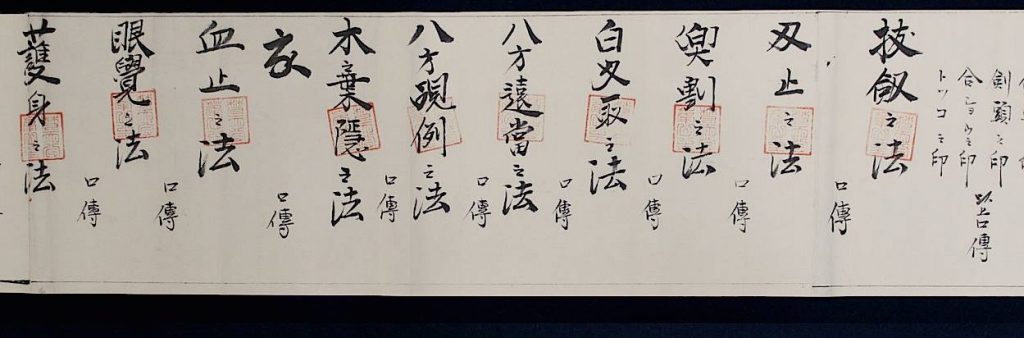 剣頭之印
以上口傳
トツコ之印
抜釼之法
口傳
刄止之法
口傳
之法
口傳
白刄取之法
口傳
八方遠當之法
口傳
八方現例之法
口傳
木葉隠之法
口傳
血止之法
口傳
眼覺之法
口傳
護身之法